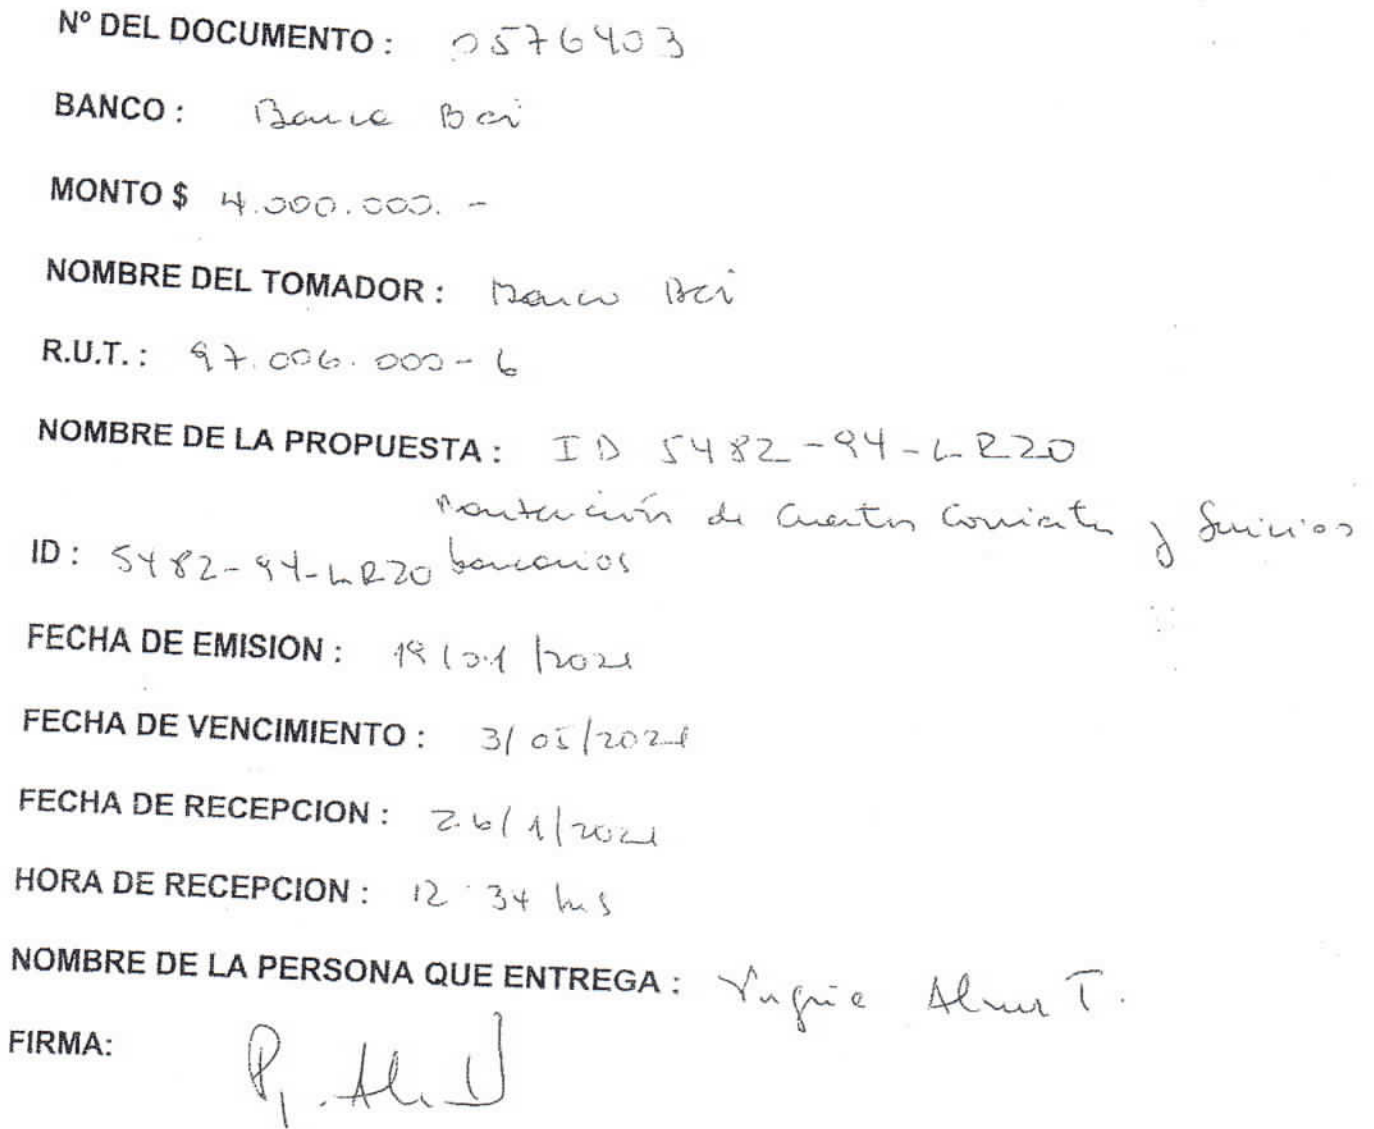 Nº DEL DOCUMENTO : 0576403
BANCO : Banco Bci
MONTO $ 4.000.000. -
NOMBRE DEL TOMADOR : Banco Bci
R.U.T. : 97.006.000-6
NOMBRE DE LA PROPUESTA : ID 5482-94-LR20
Mantención de Cuentas Corrientes y Servicios
ID : 5482-94-LR20 bancarios
FECHA DE EMISION : 19/01/2021
FECHA DE VENCIMIENTO : 3/05/2021
FECHA DE RECEPCION : 26/1/2021
HORA DE RECEPCION : 12:34 hrs
NOMBRE DE LA PERSONA QUE ENTREGA : T.
FIRMA: